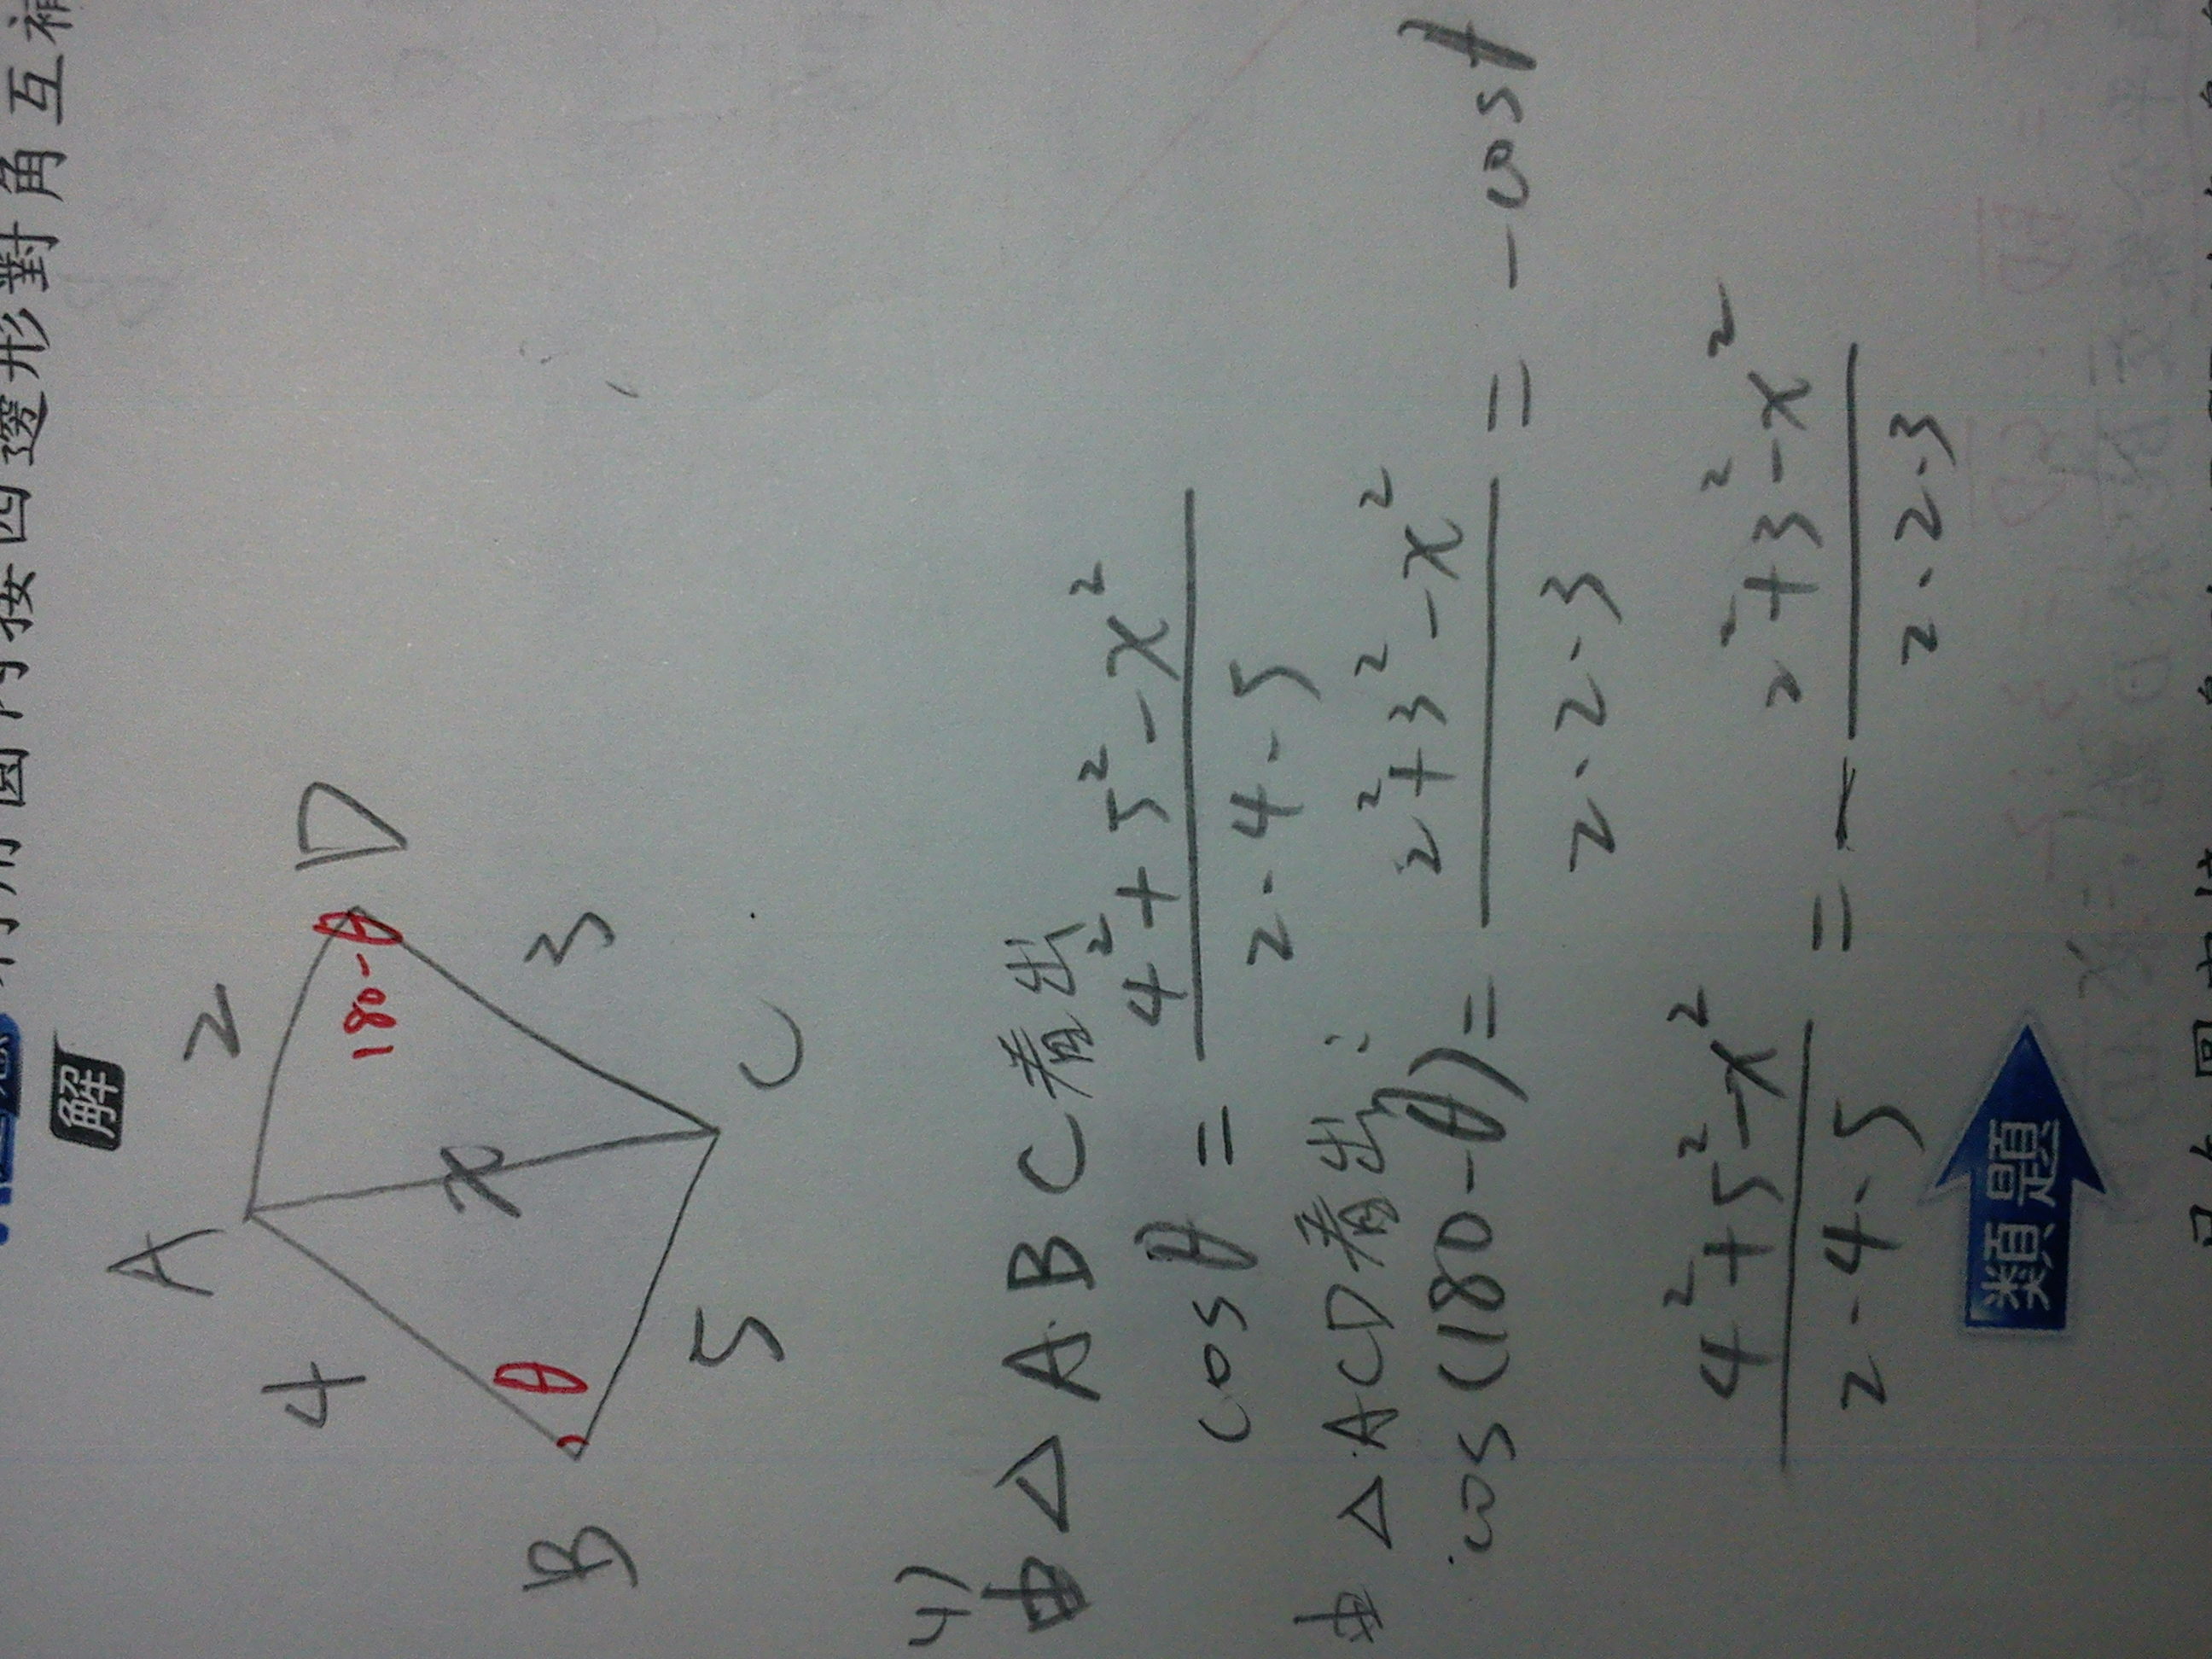 利用圓內接四邊形對角互補
解
A
2
D
4
x
180-θ
3
θ
B
5
C
4)
由△ABC看出
cosθ = 4²+5²-x² / 2·4·5
由△ACD看出:
cos(180-θ) = 2²+3²-x² / 2·2·3 = -cosθ
4²+5²-x² / 2·4·5 = - 2²+3²-x² / 2·2·3
類題